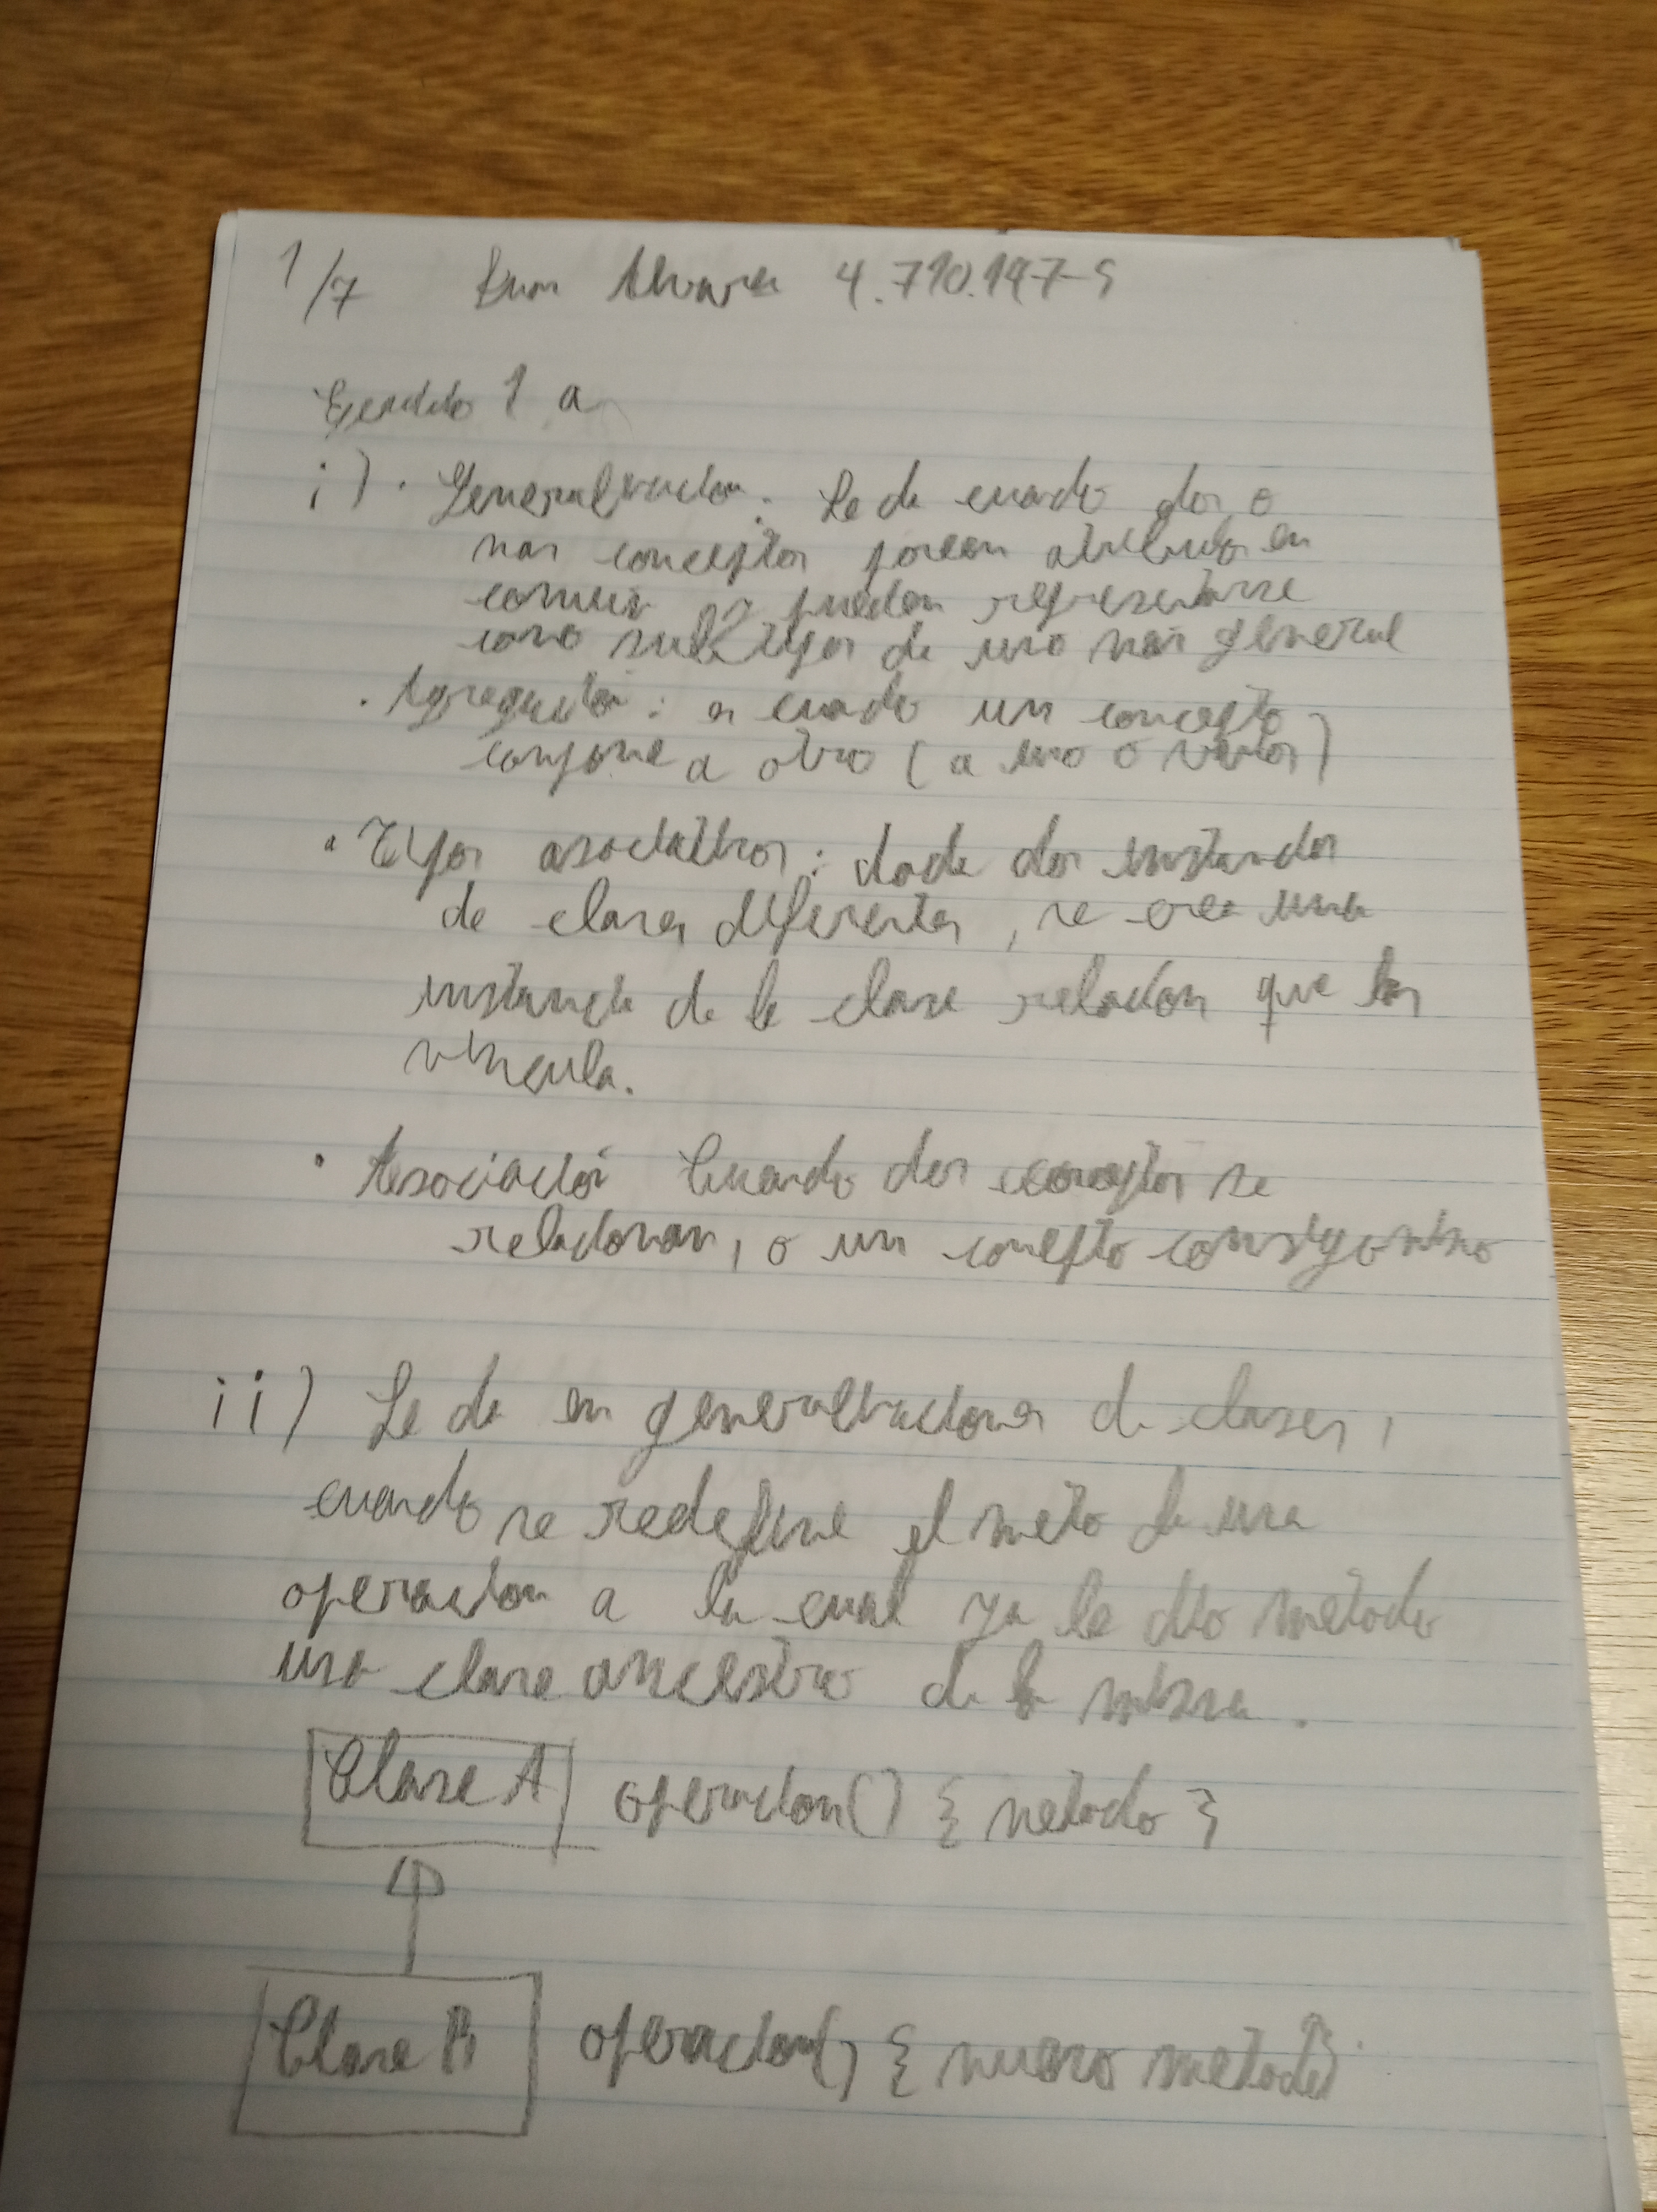 1/7 Alvarez 4.710.197-5
Ejercicio 1 a
i) · Generalización: Se da cuando dos o
mas conceptos poseen atributos en
común y pueden representarse
como subtipos de uno más general
· Agregación: es cuando un concepto
compone a otro (a uno o varios)
· Tipos asociativos: dada dos instancias
de clases diferentes, se crea una
instancia de la clase relacion que las
vincula.
· Asociación Cuando dos conceptos se
relacionan, o un concepto consigo mismo
ii) Se da en generalizaciones de clases,
cuando se redefine el meto de una
operacion a la cual ya le dio metodo
una clase ancestro de la misma.
Clase A operacion() { metodo }
Clase B operacion() { nuevo metodo }